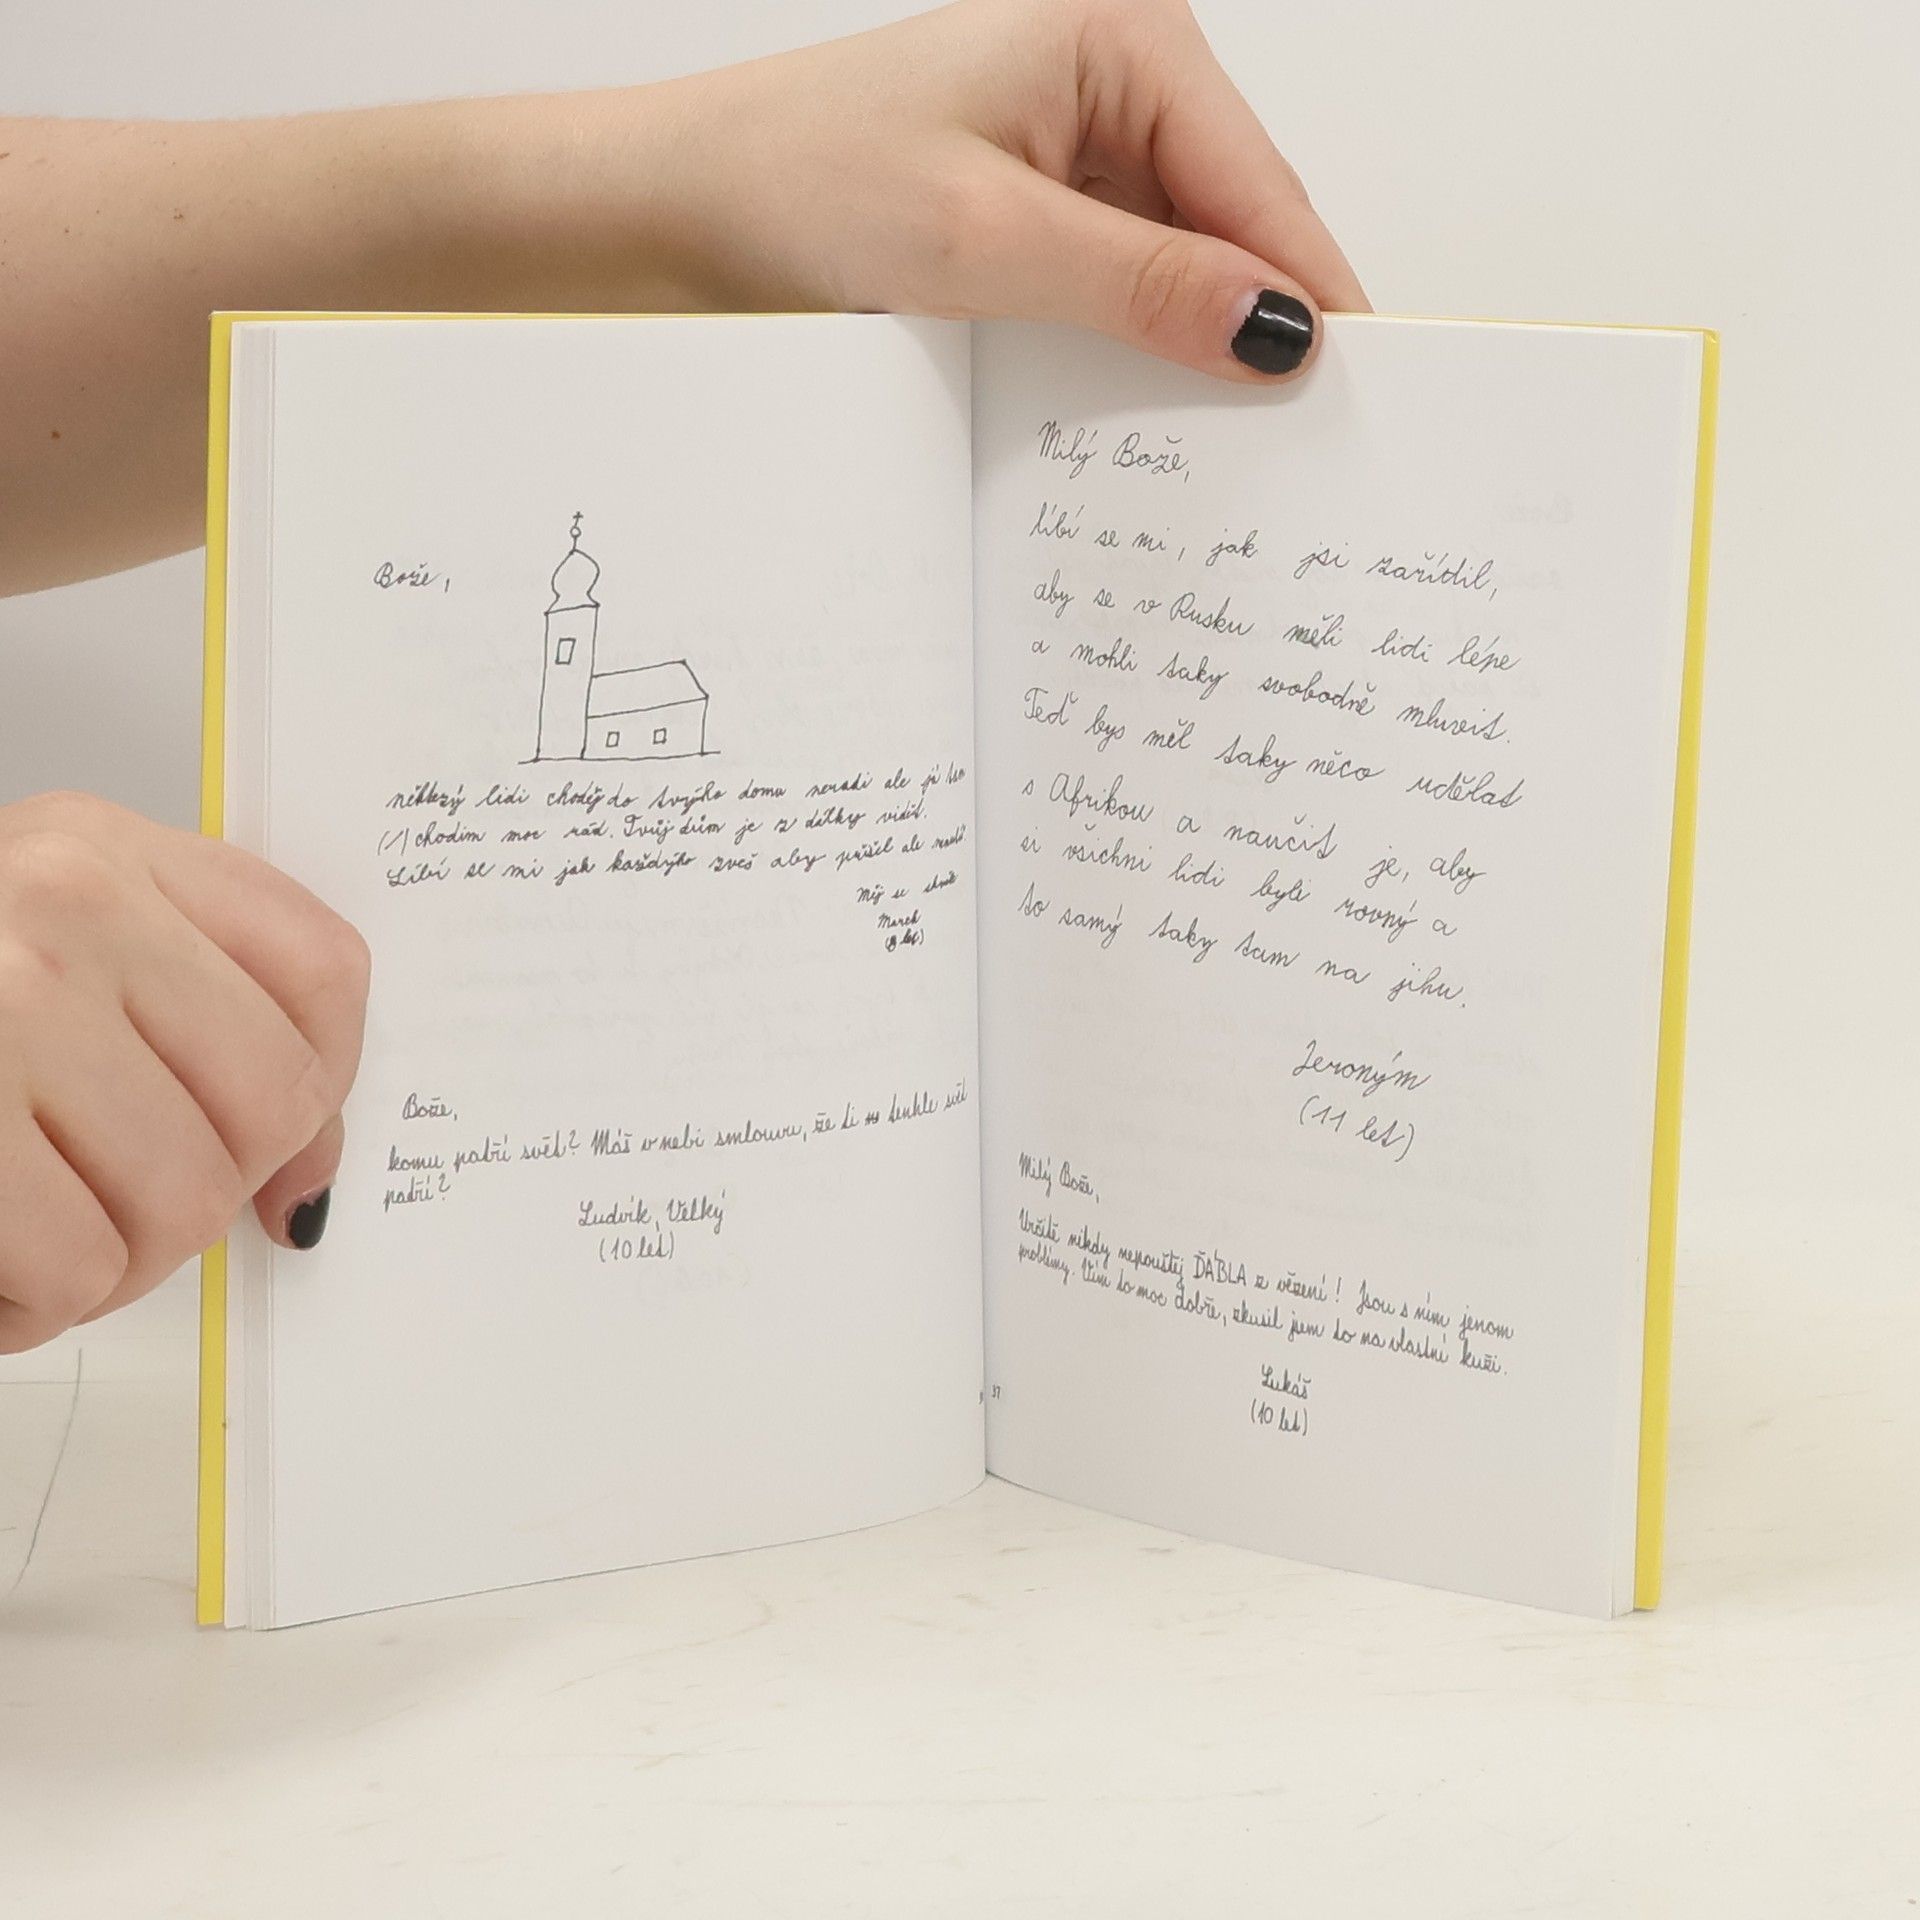 Bože,
někerý lidi choděj do tvýho domu neradi ale já tam
(1) chodim moc rád. Tvůj dům je z dálky vidět.
Líbí se mi jak každýho zveš aby přišel ale
Měj se
Marek
(8 let)
Bože,
komu patří svět? Máš v nebi smlouvu, že ti tenhle svět
patří?
Ludvík, Velký
(10 let)
Milý Bože,
líbí se mi, jak jsi zařídil,
aby se v Rusku měli lidi lépe
a mohli taky svobodně mluvit.
Teď bys měl taky něco udělat
s Afrikou a naučit je, aby
si všichni lidi byli rovný a
to samý taky tam na jihu.
Jeroným
(11 let)
Milý Bože,
Určitě nikdy nepouštěj ĎÁBLA z vězení! Jsou s ním jenom
problémy. Vím to moc dobře, zkusil jsem to na vlastní kuži.
Lukáš
(10 let)
37